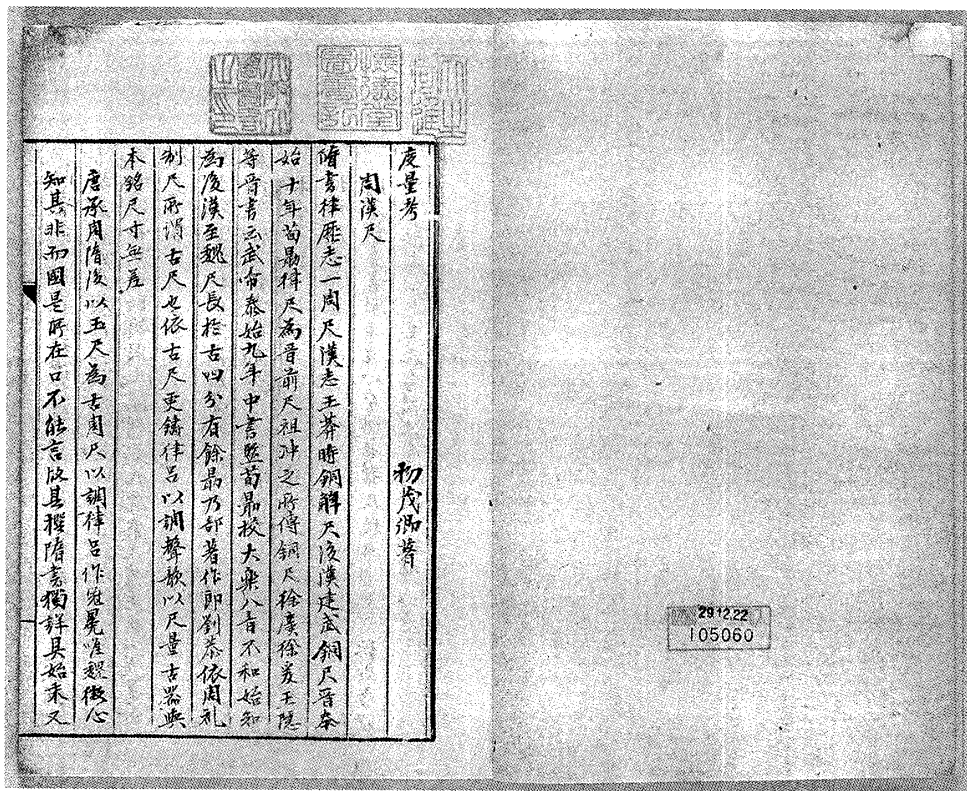 度量考 物茂卿著
周漢尺
隋書律歷志一周尺漢志王莽時銅斛尺後漢建武銅尺晉泰
始十年荀勗律尺為晉前尺祖冲之所傳銅尺徐廣徐爰王隱
等晉書云武帝泰始九年中書監荀勗校大樂八音不和始知
為後漢至魏尺長於古四分有餘勗乃部著作郎劉恭依周礼
制尺所謂古尺也依古尺更鑄律呂以調聲韵以尺量古器與
本銘尺寸無差
唐承周隋後以玉尺為古周尺以調律呂作冠冕唯魏徵心
知其非而國是所在口不能言故其撰隋書獨詳具始末又
29.12.22
105060